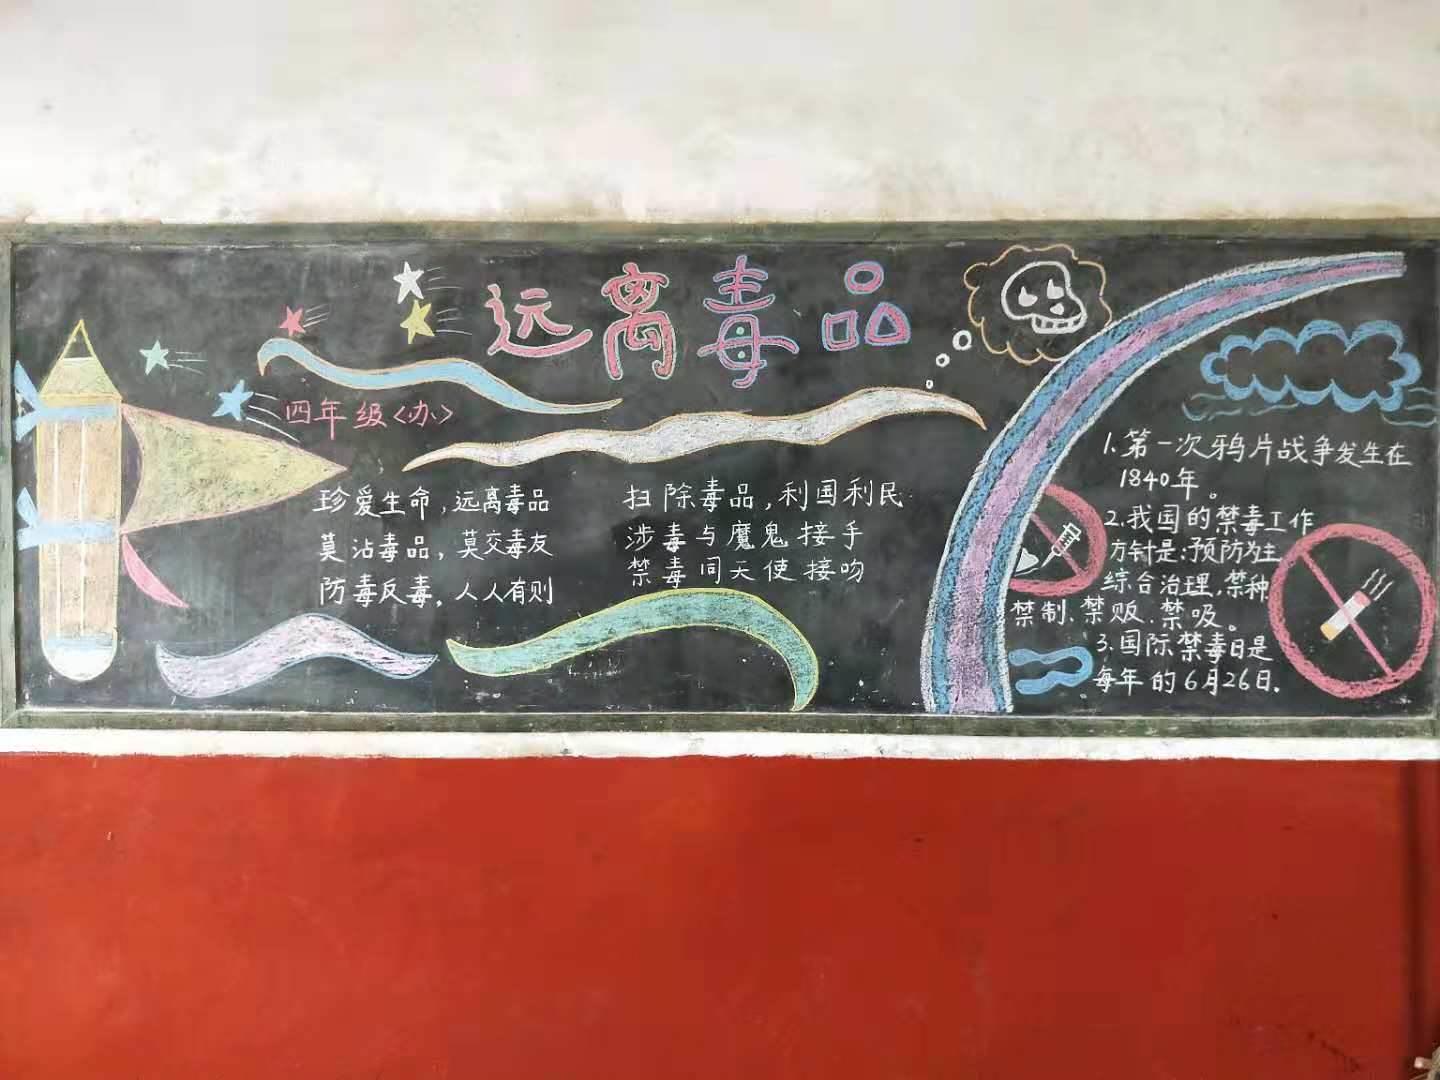 远离毒品
四年级<办>
珍爱生命,远离毒品
莫沾毒品,莫交毒友
防毒反毒,人人有则
扫除毒品,利国利民
涉毒与魔鬼接手
禁毒同天使接吻
1.第一次鸦片战争发生在
1840年。
2.我国的禁毒工作
方针是:预防为主
综合治理,禁种
禁制、禁贩、禁吸。
3.国际禁毒日是
每年的6月26日.